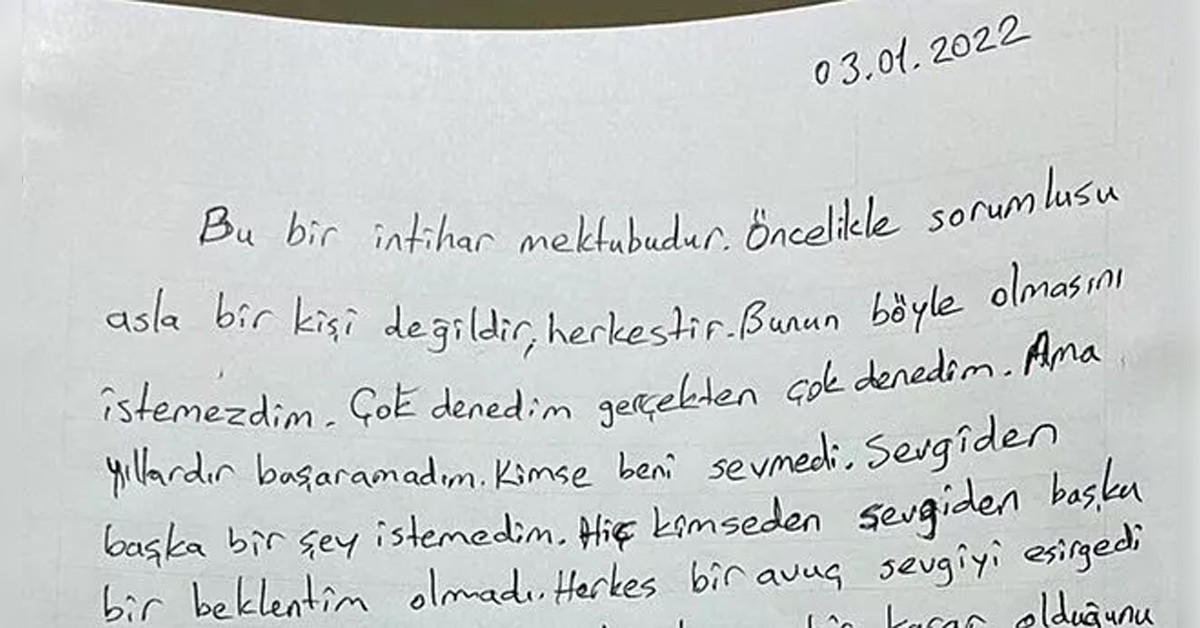 03.01.2022
Bu bir intihar mektubudur. Öncelikle sorumlusu
asla bir kişi değildir, herkestir. Bunun böyle olmasını
istemezdim. Çok denedim gerçekten çok denedim. Ama
yıllardır başaramadım. Kimse beni sevmedi. Sevgiden
başka bir şey istemedim. Hiç kimseden sevgiden başka
bir beklentim olmadı. Herkes bir avuç sevgiyi esirgedi
bir karar olduğunu